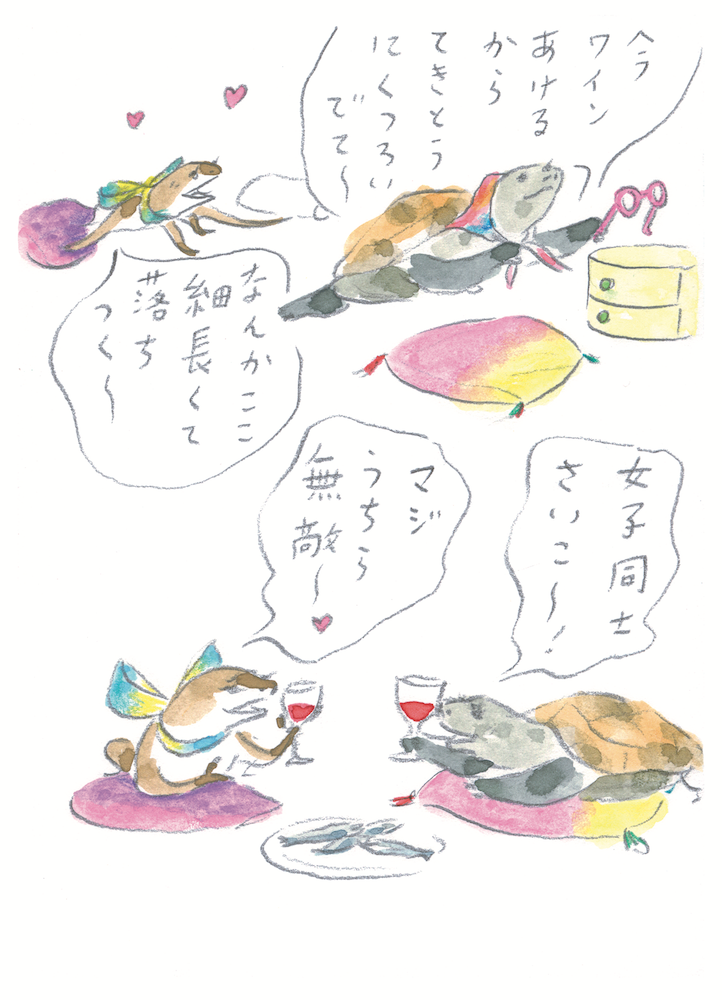 今
ワイン
あける
から
てきとう
にくつろい
でて〜
なんかここ
細長くて
落ち
つく〜
女子同士
さいこ〜!
マジ
うちら
無敵〜♥